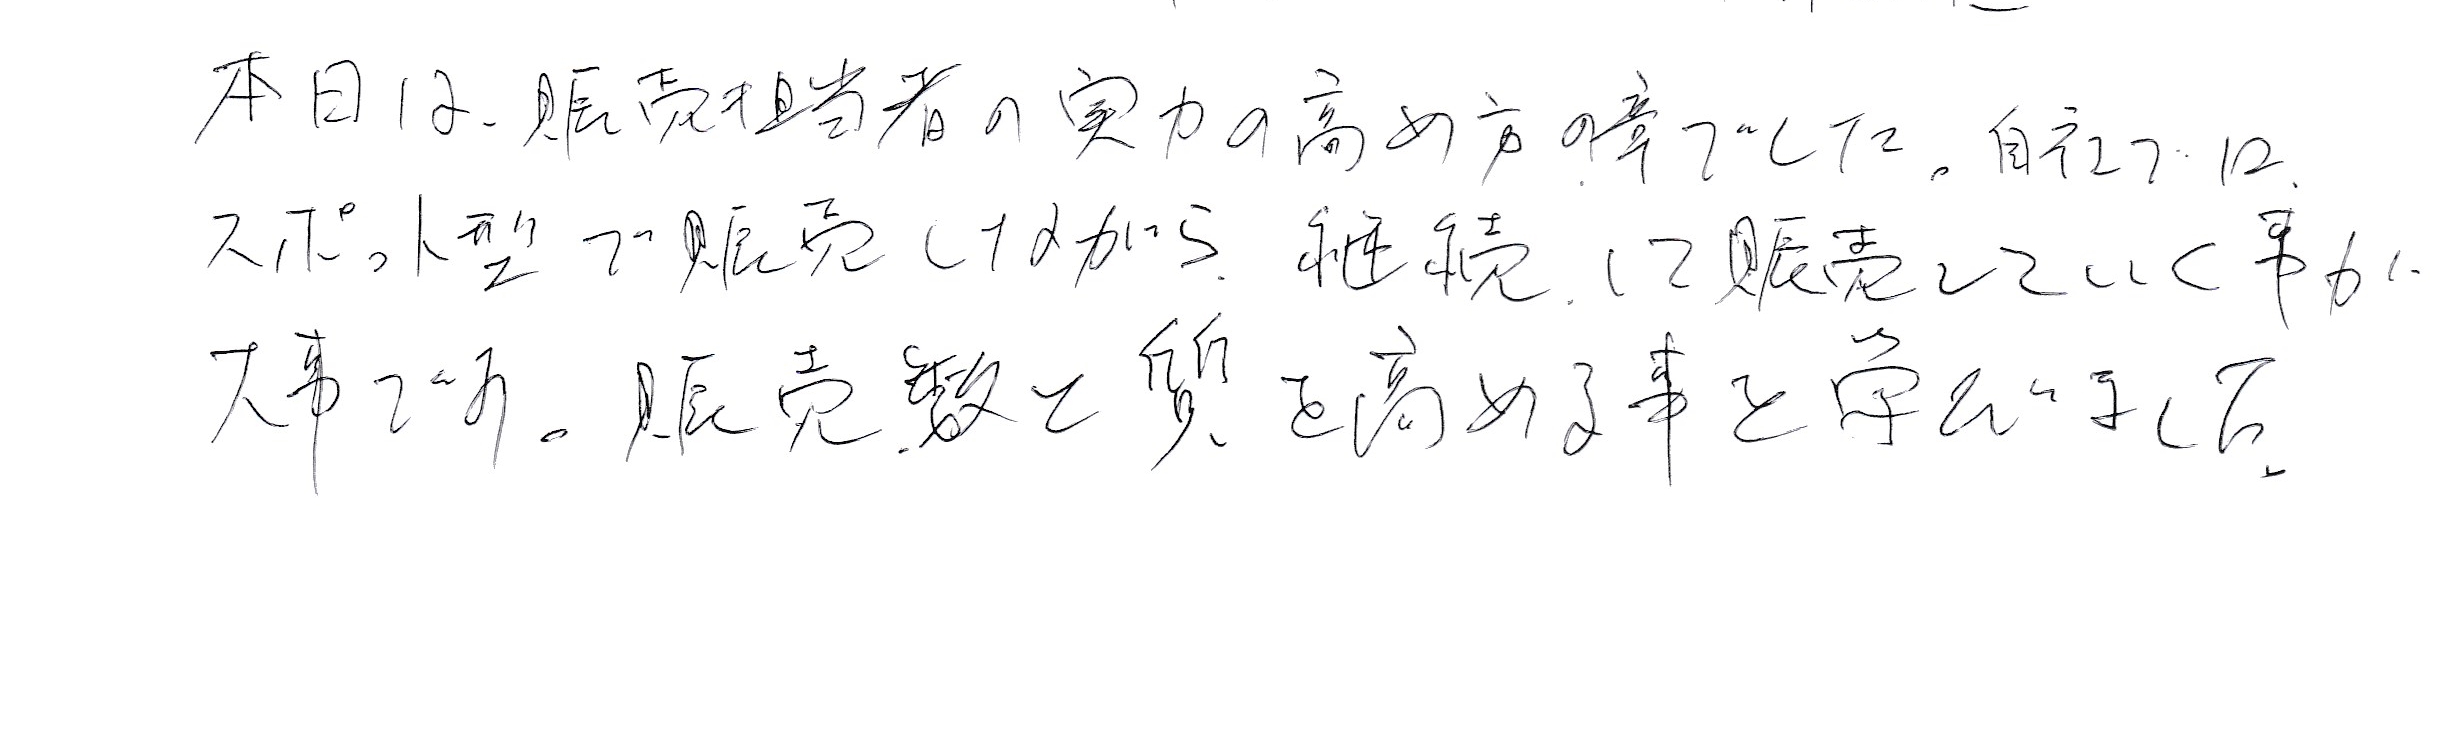 本日は、販売担当者の実力の高め方の章でした。自社では、
スポット型で販売しながら、継続して販売していく事が
大事です。販売数と質を高める事を学びました。